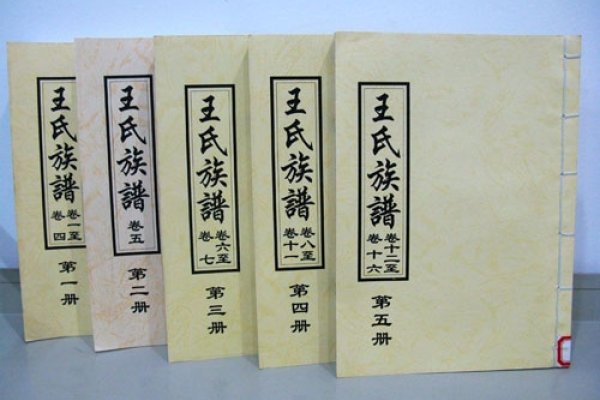 王氏族譜
卷一至
卷四
第一册
王氏族譜
卷五
第二册
王氏族譜
卷六至
卷七
第三册
王氏族譜
卷八至
卷十一
第四册
王氏族譜
卷十二至
卷十六
第五册